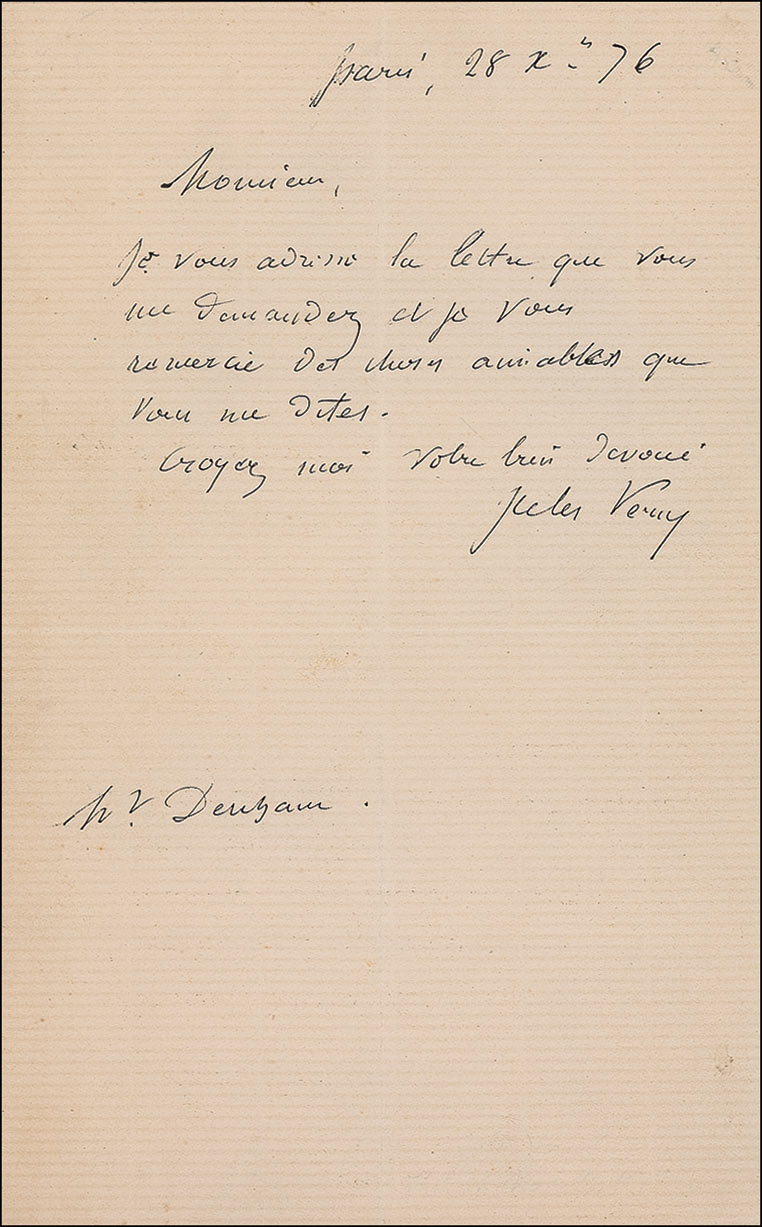 Paris, 28 Xbre 76
Monsieur,
Je vous adresse la lettre que vous
me demandez et je vous
remercie des choses aimables que
vous me dites.
Croyez moi votre bien dévoué
Jules Verne
Mr Denham.